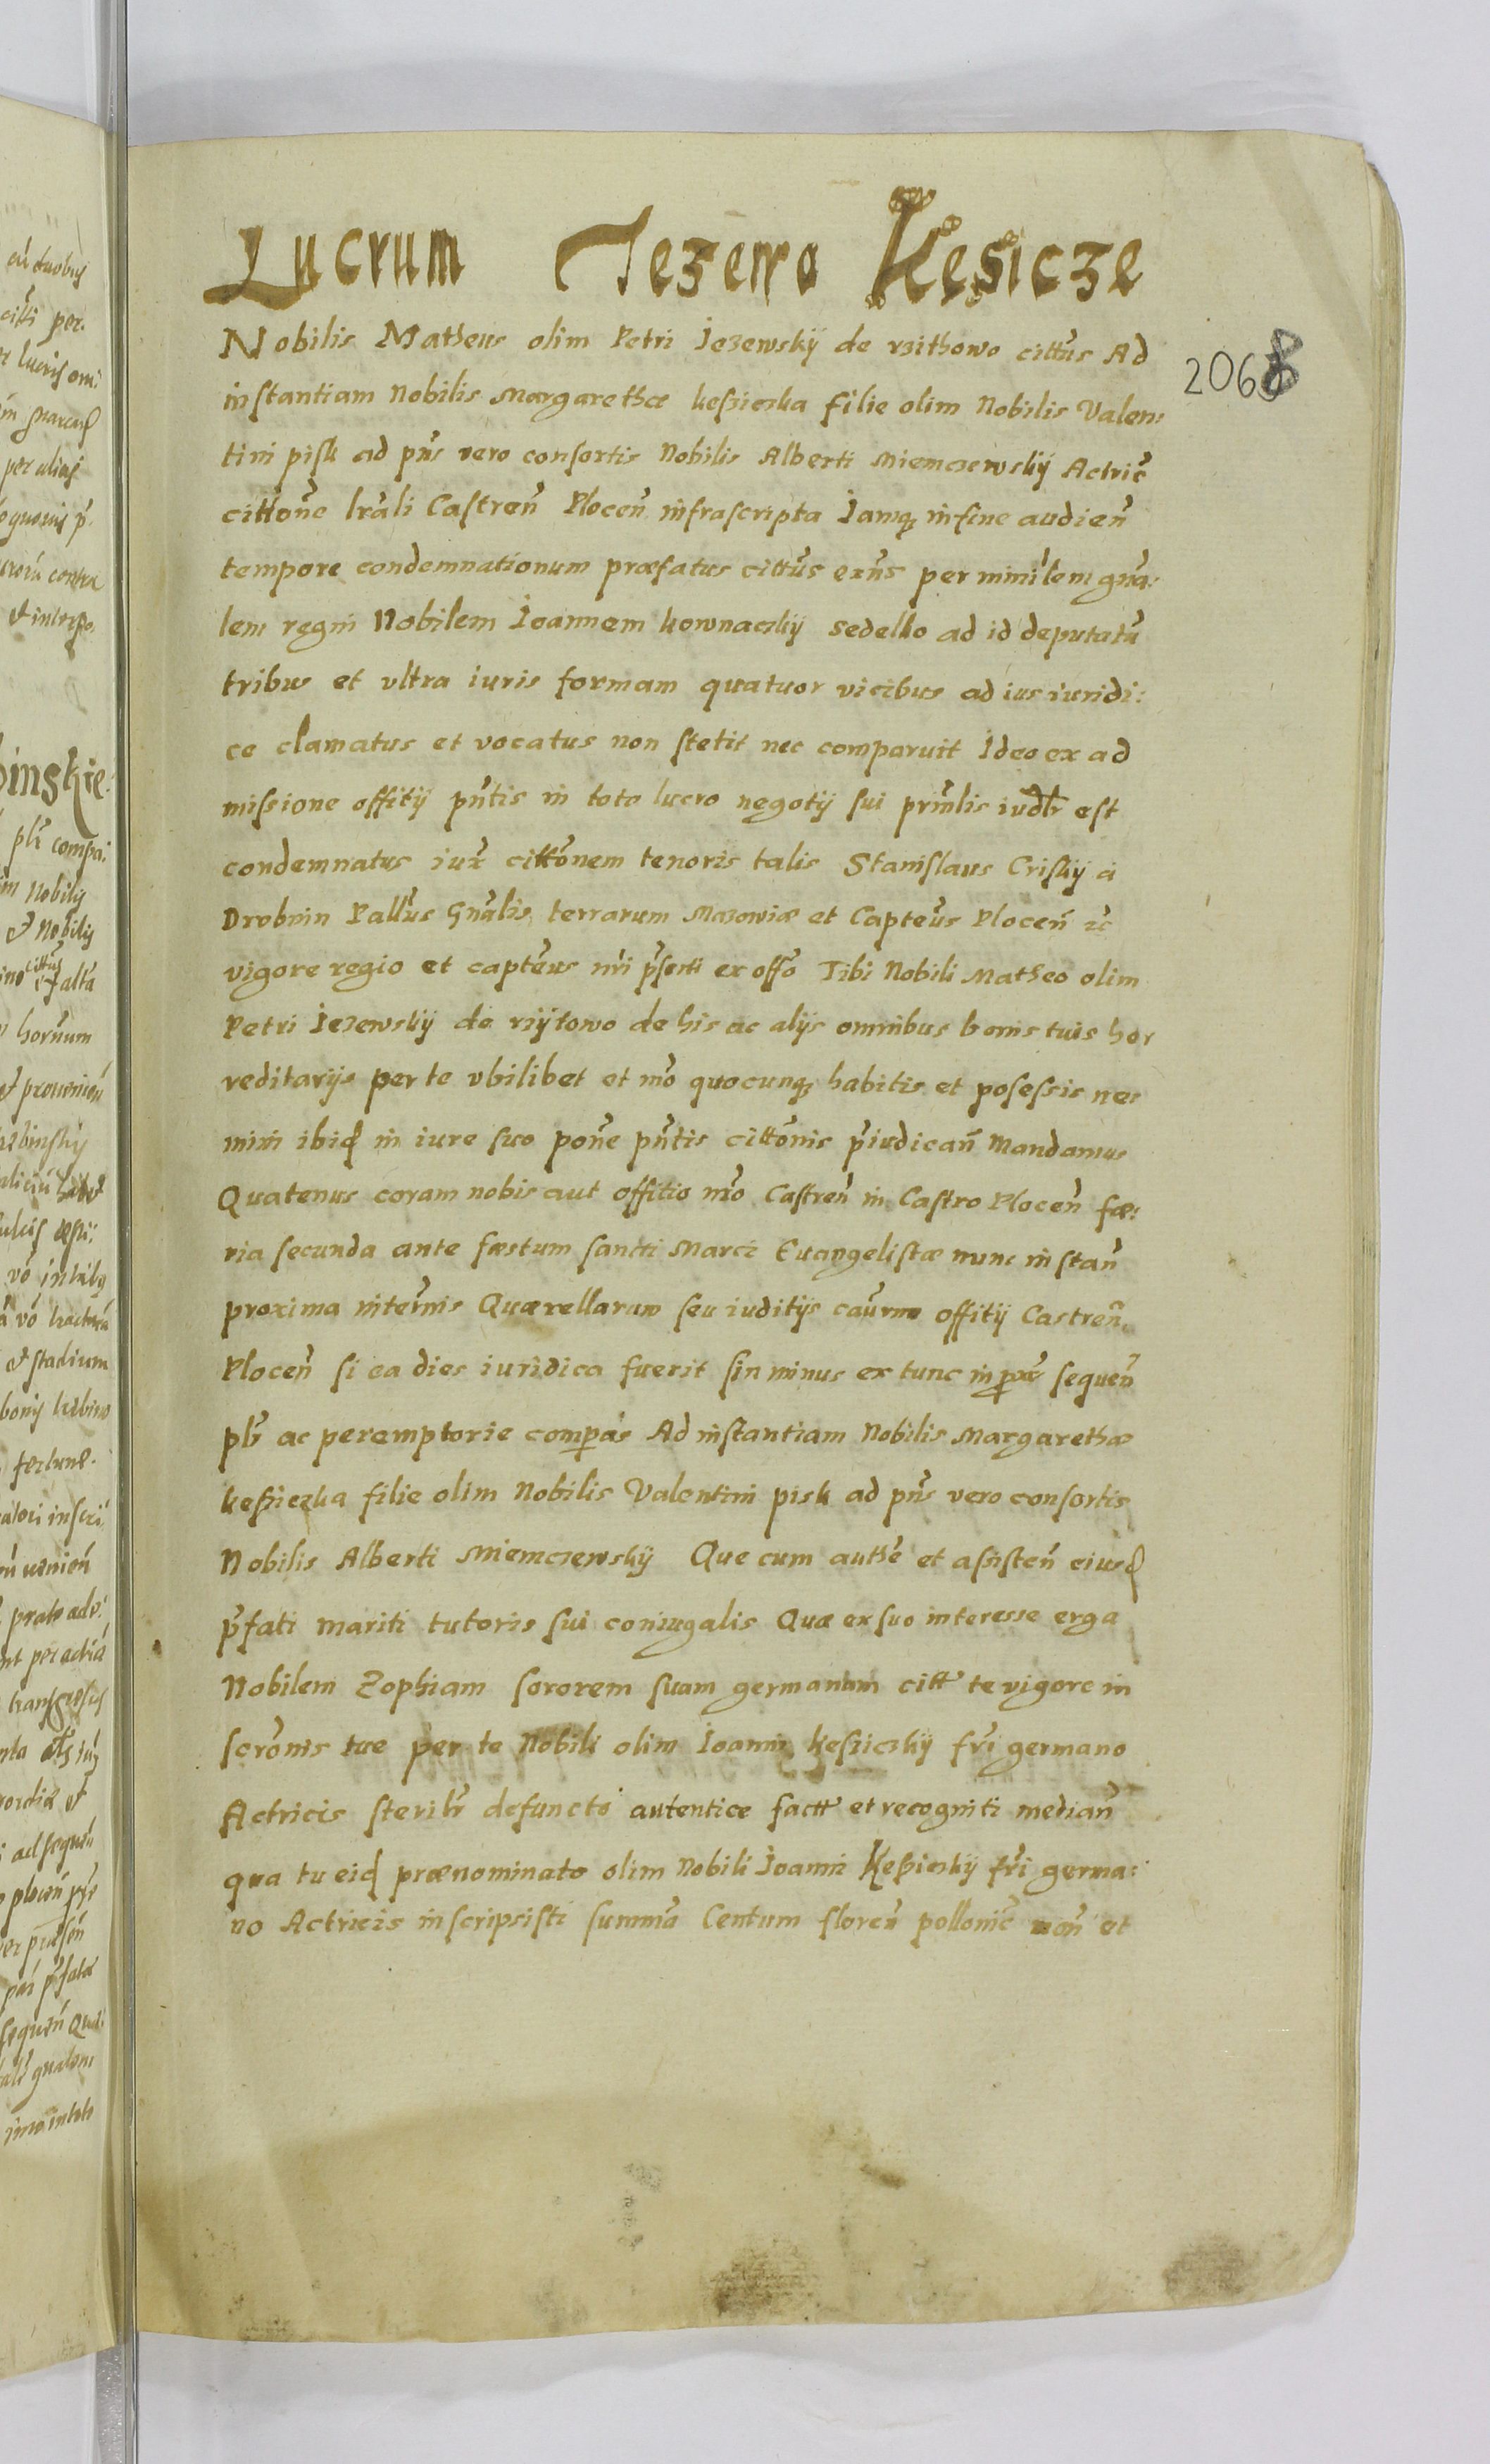 Lucrum Jezewo Kęsicze
2068
Nobilis Matheus olim Petri Jezewskÿ de rzithowo citt9us Ad
instantiam Nobilis Margarethæ kesziczka filie olim Nobilis Valen:
tini pisk ad pñs vero consortis Nobilis Alberti Miemczewskÿ Actric̃
citt̃oñe lr̃ali Castreñ Ploceñ infrascripta Jamq; in fine audieñ
tempore condemnationum præfatus citt̃us exñs per minĩlem gñã:
lem regni Nobilem Joannem kownaczkÿ sedello ad id deputatũ
tribus et vltra iuris formam quatuor vicibus ad ius iuridi:
ce clamatus et vocatus non stetit nec comparuit Ideo ex ad
missione offitÿ pñtis in toto lucro negotÿ sui prĩnlis iudlr̃ est
condemnatus iux̃ citt̃onem tenoris talis Stanislaus Criskÿ a
Drobnin Pall̃us Gñalis terrarum Mazowiæ et Capte̾us Ploceñ &c̃
vigore regio et capte̾us nr̃i p̃senti ex off̃o Tibi Nobili Matheo olim
Petri Jezewskÿ de rzÿtowo de his ac alÿs omnibus bonis tuis hær
reditarÿs per te vbilibet et m̃o quocunq; habitis et posessis ne:
mini ibid in iure suo poñe pñtis citt̃onis p̃iudicañ Mandamus
Quatenus coram nobis aut offitio nr̃o Castreñ in Castro Ploceñ fæ:
ria secunda ante fæstum sancti Marci Euangelistæ nunc instañ
proxima in ter̃nis Quærellarum seu iuditÿs cau̾rum offitÿ Castreñ
Ploceñ si ea dies iuridica fuerit sin minus ex tunc in prox̃ sequeñ
plr̃ ac peremptorie compas̃ Ad instantiam Nobilis Margarethæ
kesziczka filie olim Nobilis Valentini pisk ad pñs vero consortis
Nobilis Alberti Miemczewskÿ Que cum auth̃e et assisteñ eiusd
p̃fati mariti tutoris sui coniugalis Quæ ex suo interesse erga
Nobilem Zophiam sororem suam germanam citt̃ te vigore in
scr̃onis tue per te Nobili olim Joanni kesziczkÿ fr̃i germano
Actricis sterilr̃ defuncto autentice fact̃ et recogniti mediañ
qua tu eid prænominato olim Nobili Joanni Kesziczkÿ fr̃i germa:
no Actricis inscripsisti summã Centum floreñ polloniẽ moñ et